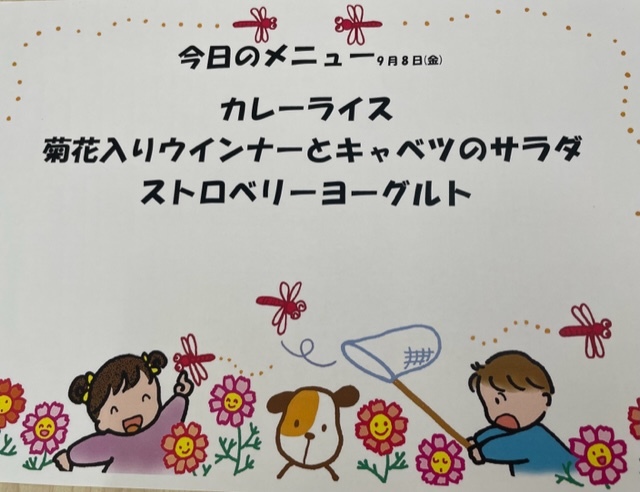 今日のメニュー 9月8日(金)
カレーライス
菊花入りウインナーとキャベツのサラダ
ストロベリーヨーグルト